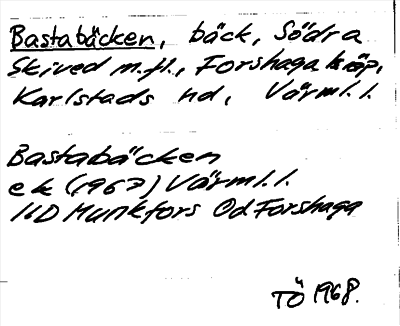 Bastabäcken, bäck, Södra
Skived m.fl., Forshaga köp,
Karlstads hd, Värml. l.
Bastabäcken
ek (1967) Värml. l.
11D Munkfors Öd Forshaga
TÖ 1968.